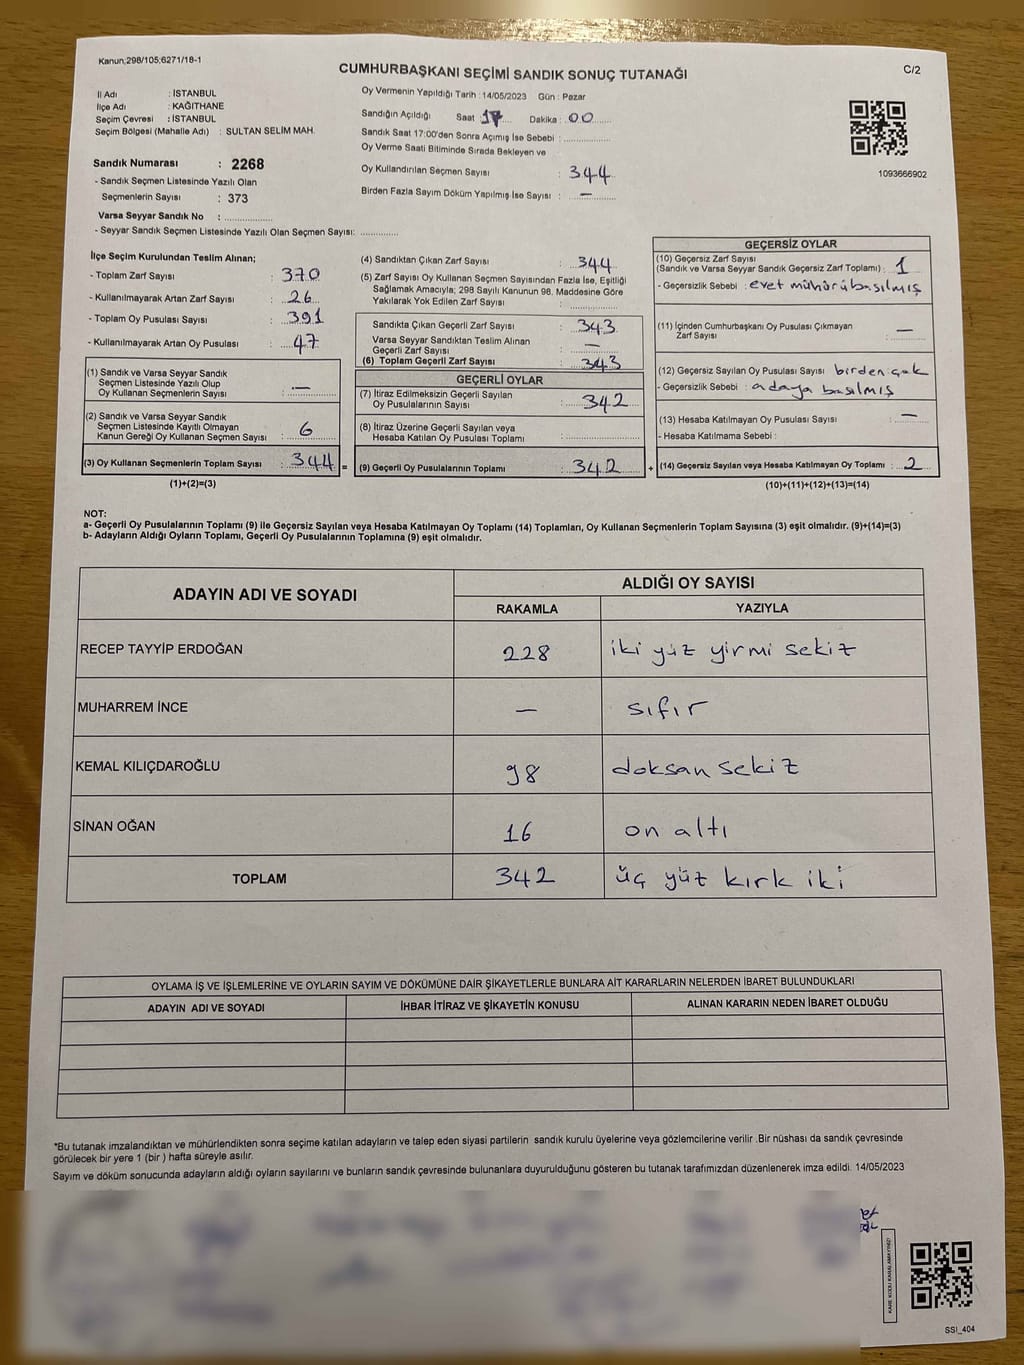 Kanun,298/105;6271/18-1
CUMHURBAŞKANI SEÇİMİ SANDIK SONUÇ TUTANAĞI
C/2
İl Adı : İSTANBUL
İlçe Adı : KAĞITHANE
Seçim Çevresi : İSTANBUL
Seçim Bölgesi (Mahalle Adı) : SULTAN SELİM MAH.
Sandık Numarası : 2268
- Sandık Seçmen Listesinde Yazılı Olan
Seçmenlerin Sayısı : 373
Varsa Seyyar Sandık No : ..............
- Seyyar Sandık Seçmen Listesinde Yazılı Olan Seçmen Sayısı: ............
Oy Vermenin Yapıldığı Tarih : 14/05/2023 Gün : Pazar
Sandığın Açıldığı Saat 17 Dakika : 00
Sandık Saat 17:00'den Sonra Açımış İse Sebebi : ..............
Oy Verme Saati Bitiminde Sırada Bekleyen ve
Oy Kullandırılan Seçmen Sayısı : 344
Birden Fazla Sayım Döküm Yapılmış İse Sayısı : —
1093666902
İlçe Seçim Kurulundan Teslim Alınan;
- Toplam Zarf Sayısı : 370
- Kullanılmayarak Artan Zarf Sayısı : 26
- Toplam Oy Pusulası Sayısı : 391
- Kullanılmayarak Artan Oy Pusulası : 47
(1) Sandık ve Varsa Seyyar Sandık
Seçmen Listesinde Yazılı Olup
Oy Kullanan Seçmenlerin Sayısı : —
(2) Sandık ve Varsa Seyyar Sandık
Seçmen Listesinde Kayıtlı Olmayan
Kanun Gereği Oy Kullanan Seçmen Sayısı : 6
(3) Oy Kullanan Seçmenlerin Toplam Sayısı : 344 =
(1)+(2)=(3)
(4) Sandıktan Çıkan Zarf Sayısı : 344
(5) Zarf Sayısı Oy Kullanan Seçmen Sayısından Fazla İse, Eşitliği
Sağlamak Amacıyla; 298 Sayılı Kanunun 98. Maddesine Göre
Yakılarak Yok Edilen Zarf Sayısı : ..............
Sandıkta Çıkan Geçerli Zarf Sayısı : 343
Varsa Seyyar Sandıktan Teslim Alınan
Geçerli Zarf Sayısı : —
(6) Toplam Geçerli Zarf Sayısı : 343
GEÇERLİ OYLAR
(7) İtiraz Edilmeksizin Geçerli Sayılan
Oy Pusulalarının Sayısı : 342
(8) İtiraz Üzerine Geçerli Sayılan veya
Hesaba Katılan Oy Pusulası Toplamı : ..............
(9) Geçerli Oy Pusulalarının Toplamı : 342 +
GEÇERSİZ OYLAR
(10) Geçersiz Zarf Sayısı
(Sandık ve Varsa Seyyar Sandık Geçersiz Zarf Toplamı) : 1
- Geçersizlik Sebebi : evet mühürü basılmış
(11) İçinden Cumhurbaşkanı Oy Pusulası Çıkmayan
Zarf Sayısı : —
(12) Geçersiz Sayılan Oy Pusulası Sayısı birden çok
- Geçersizlik Sebebi : adaya basılmış
(13) Hesaba Katılmayan Oy Pusulası Sayısı : —
- Hesaba Katılmama Sebebi :
(14) Geçersiz Sayılan veya Hesaba Katılmayan Oy Toplamı : 2
(10)+(11)+(12)+(13)=(14)
NOT:
a- Geçerli Oy Pusulalarının Toplamı (9) ile Geçersiz Sayılan veya Hesaba Katılmayan Oy Toplamı (14) Toplamları, Oy Kullanan Seçmenlerin Toplam Sayısına (3) eşit olmalıdır. (9)+(14)=(3)
b- Adayların Aldığı Oyların Toplamı, Geçerli Oy Pusulalarının Toplamına (9) eşit olmalıdır.
ADAYIN ADI VE SOYADI
ALDIĞI OY SAYISI
RAKAMLA YAZIYLA
RECEP TAYYİP ERDOĞAN 228 iki yüz yirmi sekiz
MUHARREM İNCE — sıfır
KEMAL KILIÇDAROĞLU 98 doksan sekiz
SİNAN OĞAN 16 on altı
TOPLAM 342 üç yüz kırk iki
OYLAMA İŞ VE İŞLEMLERİNE VE OYLARIN SAYIM VE DÖKÜMÜNE DAİR ŞİKAYETLERLE BUNLARA AİT KARARLARIN NELERDEN İBARET BULUNDUKLARI
ADAYIN ADI VE SOYADI İHBAR İTİRAZ VE ŞİKAYETİN KONUSU ALINAN KARARIN NEDEN İBARET OLDUĞU
*Bu tutanak imzalandıktan ve mühürlendikten sonra seçime katılan adayların ve talep eden siyasi partilerin sandık kurulu üyelerine veya gözlemcilerine verilir .Bir nüshası da sandık çevresinde
görülecek bir yere 1 (bir ) hafta süreyle asılır.
Sayım ve döküm sonucunda adayların aldığı oyların sayılarını ve bunların sandık çevresinde bulunanlara duyurulduğunu gösteren bu tutanak tarafımızdan düzenlenerek imza edildi. 14/05/2023
KARE KODU KARALAMAYINIZ!
SSI_404